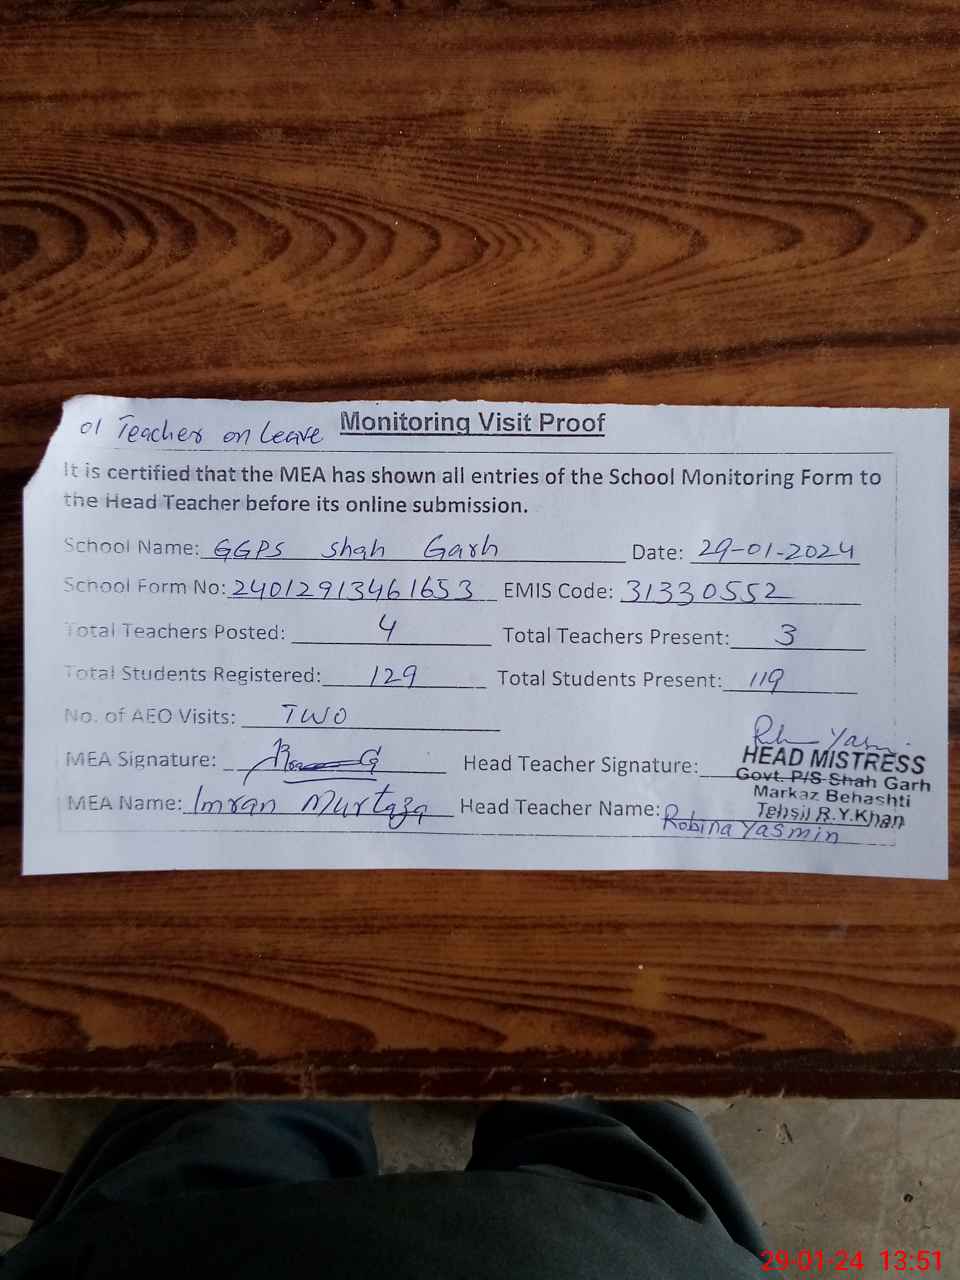 01 Teacher on Leave
Monitoring Visit Proof
It is certified that the MEA has shown all entries of the School Monitoring Form to
the Head Teacher before its online submission.
School Name: GGPS Shah Garh Date: 29-01-2024
School Form No: 24012913461653 EMIS Code: 31330552
Total Teachers Posted: 4 Total Teachers Present: 3
Total Students Registered: 129 Total Students Present: 119
No. of AEO Visits: TWO
MEA Signature: Head Teacher Signature: Yasmin
HEAD MISTRESS
Govt. P/S Shah Garh
Markaz Behashti
Tehsil R.Y.Khan
MEA Name: Imran Murtaza Head Teacher Name: Robina Yasmin
29-01-24 13:51